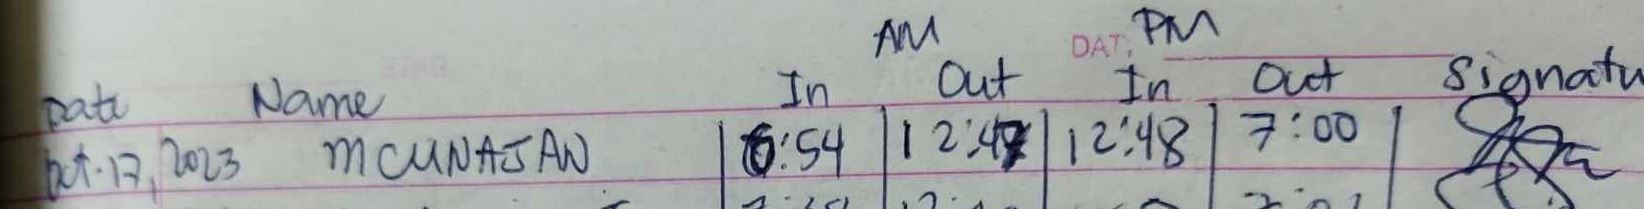 AM PM
DATE
Date Name In Out In Out Signatu
Oct. 17, 2023 MCUNAJAN 6:54 12:47 12:48 7:00